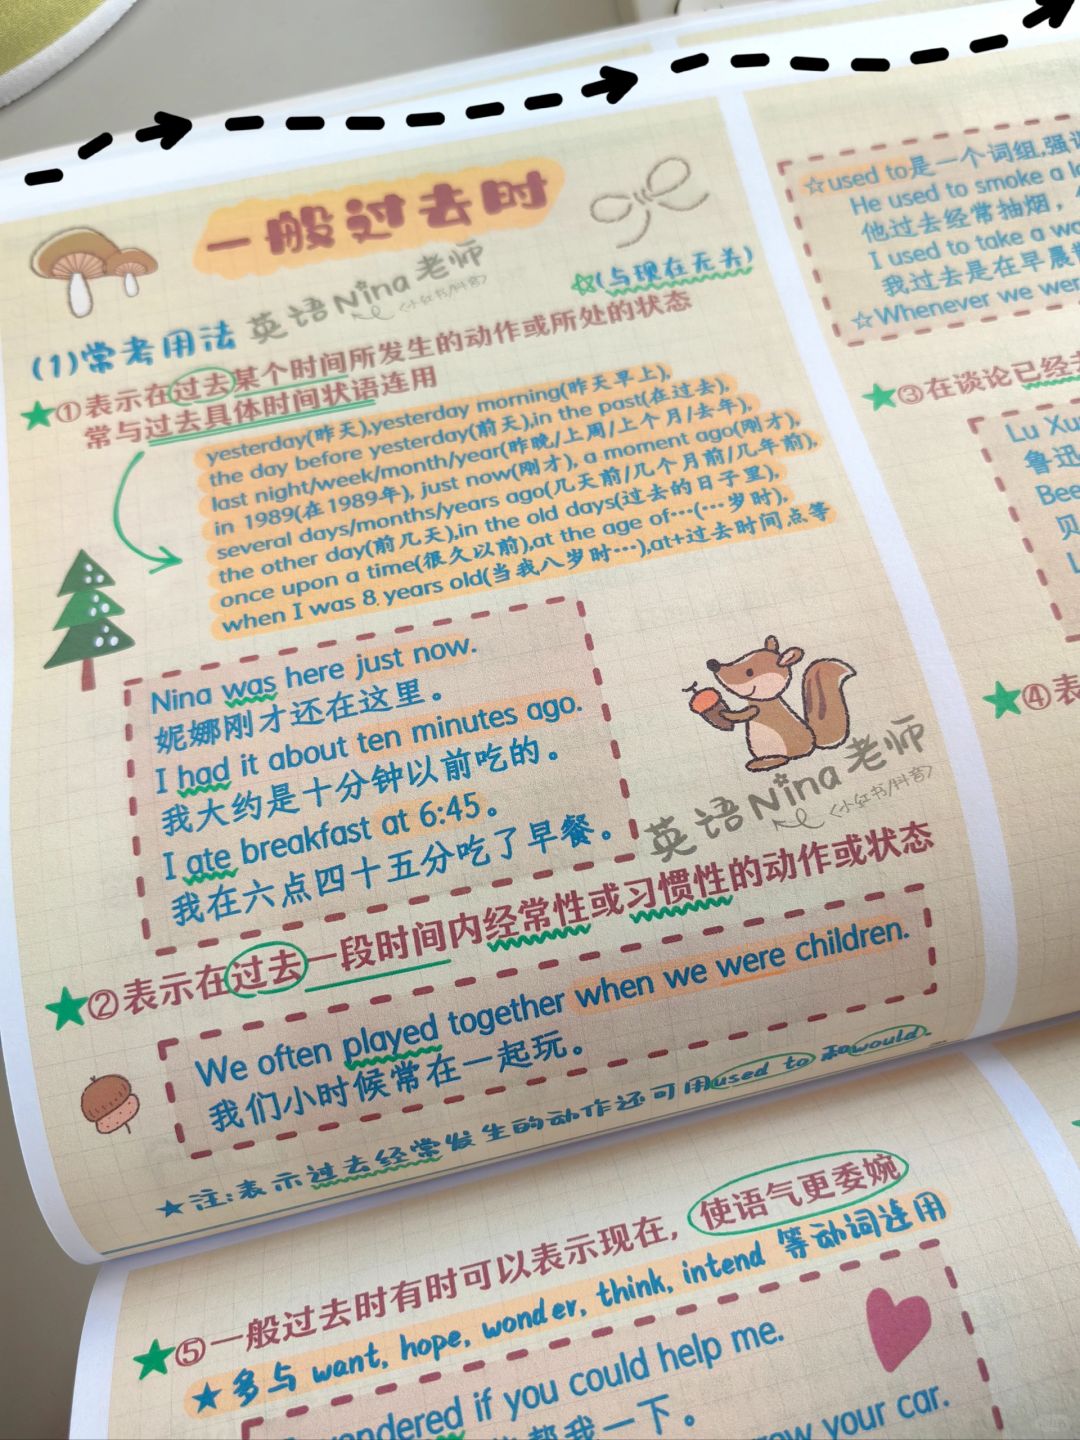 一般过去时
英语Nina老师
<小红书/抖音>
☆(与现在无关)
(1)常考用法
★①表示在过去某个时间所发生的动作或所处的状态
常与过去具体时间状语连用
yesterday(昨天),yesterday morning(昨天早上),
the day before yesterday(前天),in the past(在过去),
last night/week/month/year(昨晚/上周/上个月/去年),
in 1989(在1989年), just now(刚才), a moment ago(刚才),
several days/months/years ago(几天前/几个月前/几年前),
the other day(前几天),in the old days(过去的日子里),
once upon a time(很久以前),at the age of…(…岁时),
when I was 8 years old(当我八岁时…),at+过去时间点等
Nina was here just now.
妮娜刚才还在这里。
I had it about ten minutes ago.
我大约是十分钟以前吃的。
I ate breakfast at 6:45。
我在六点四十五分吃了早餐。
英语Nina老师
<小红书/抖音>
★②表示在过去一段时间内经常性或习惯性的动作或状态
We often played together when we were children.
我们小时候常在一起玩。
★注:表示过去经常发生的动作还可用used to 和would.
☆used to是一个词组,强
He used to smoke a
他过去经常抽烟,
I used to take a
我过去是在早晨
☆Whenever we were
★③在谈论已经
Lu Xu
鲁迅
Bee
贝
L
★④表
★⑤一般过去时有时可以表示现在, 使语气更委婉
★多与 want, hope, wonder, think, intend 等动词连用
wondered if you could help me.
帮我一下。
your car.